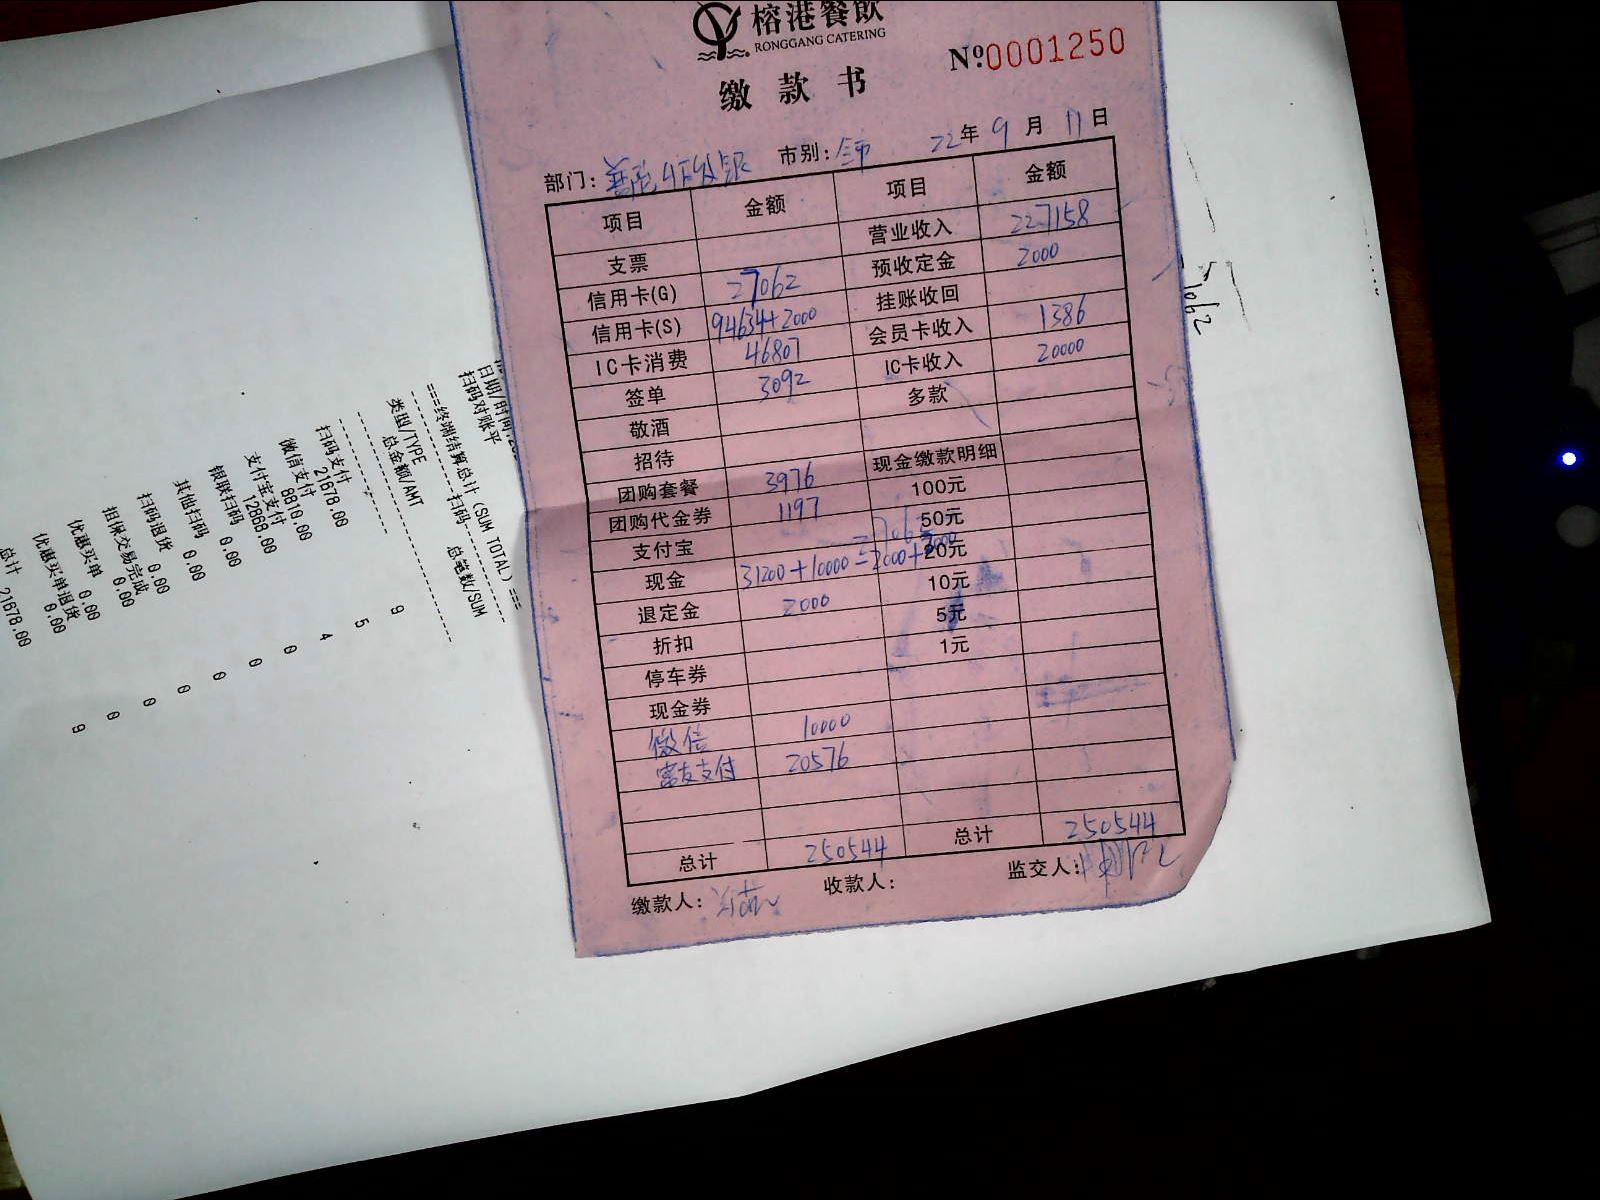 榕港餐飲
RONGGANG CATERING
缴款书
Nº0001250
部门： 市别：全市 22年9月11日
项目 金额 项目 金额
支票 营业收入 227158
信用卡(G) 27062 预收定金 2000
信用卡(S) 94634+2000 挂账收回
IC卡消费 46807 会员卡收入 1386
签单 3092 IC卡收入 20000
敬酒 多款
招待
团购套餐 3976 现金缴款明细
团购代金券 1197 100元
支付宝 50元
现金 31200+10000=2000+ 20元
退定金 2000 10元
折扣 5元
停车券 1元
现金券
微信 10000
富友支付 20576
总计 250544 总计 250544
缴款人： 收款人： 监交人：
扫码对账平
===终端结算总计(SUM TOTAL)===
扫码
类型/TYPE 总笔数/SUM
总金额/AMT
扫码支付 9
21678.00
微信支付 5
8810.00
支付宝支付 4
12868.00
银联扫码 0
0.00
其他扫码 0
0.00
扫码退货 0
0.00
担保交易完成 0
0.00
优惠买单 0
0.00
优惠买单退货 0
0.00
总计 9
21678.00